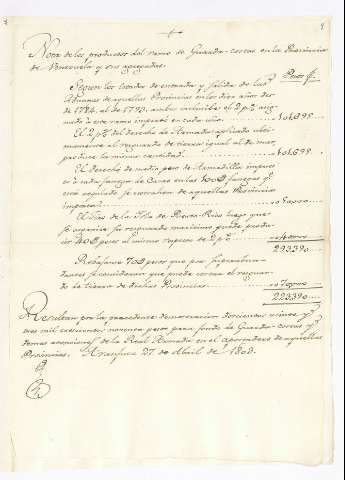 Nota de los productos del ramo de Guarda-costas en la Provincia
de Venezuela y sus agregadas.
Pesos fs.
Segun los estados de entrada y salida de las
Aduanas de aquellas Provincias en los diez años des
de 1784 al de 1793 ambos inclusibe el 2 p% asig
nado á este ramo importó en cada año
101,695
El 2 p% del derecho de Armada aplicado ulti
mamente al resguardo de tierra igual al de mar,
produce la misma cantidad
101,695
El derecho de medio peso de Armadilla impues
to á cada fanega de Cacao en las 100@ fanegas qe.
está regulado se extrahen de aquellas Provincias
importa
50,000
El de la Isla de Puerto Rico luego que
se organice su resguardo maritimo puede produ
cir 40@ pesos al mismo respecto de 2 p%
40,000
293,390
Rebajanse 70@ pesos que por
se consideran que puede costar el resguar
do de tierra de dichas Provincias
70,000
223,390
Resultan por la precedente demostracion doscientos veinte y
tres mil trescientos noventa pesos para fondo de Guarda-costas y
demas atenciones de la Real Armada en el apostadero de aquellas
Provincias. Aranjuez 27 de Abril de 1808.